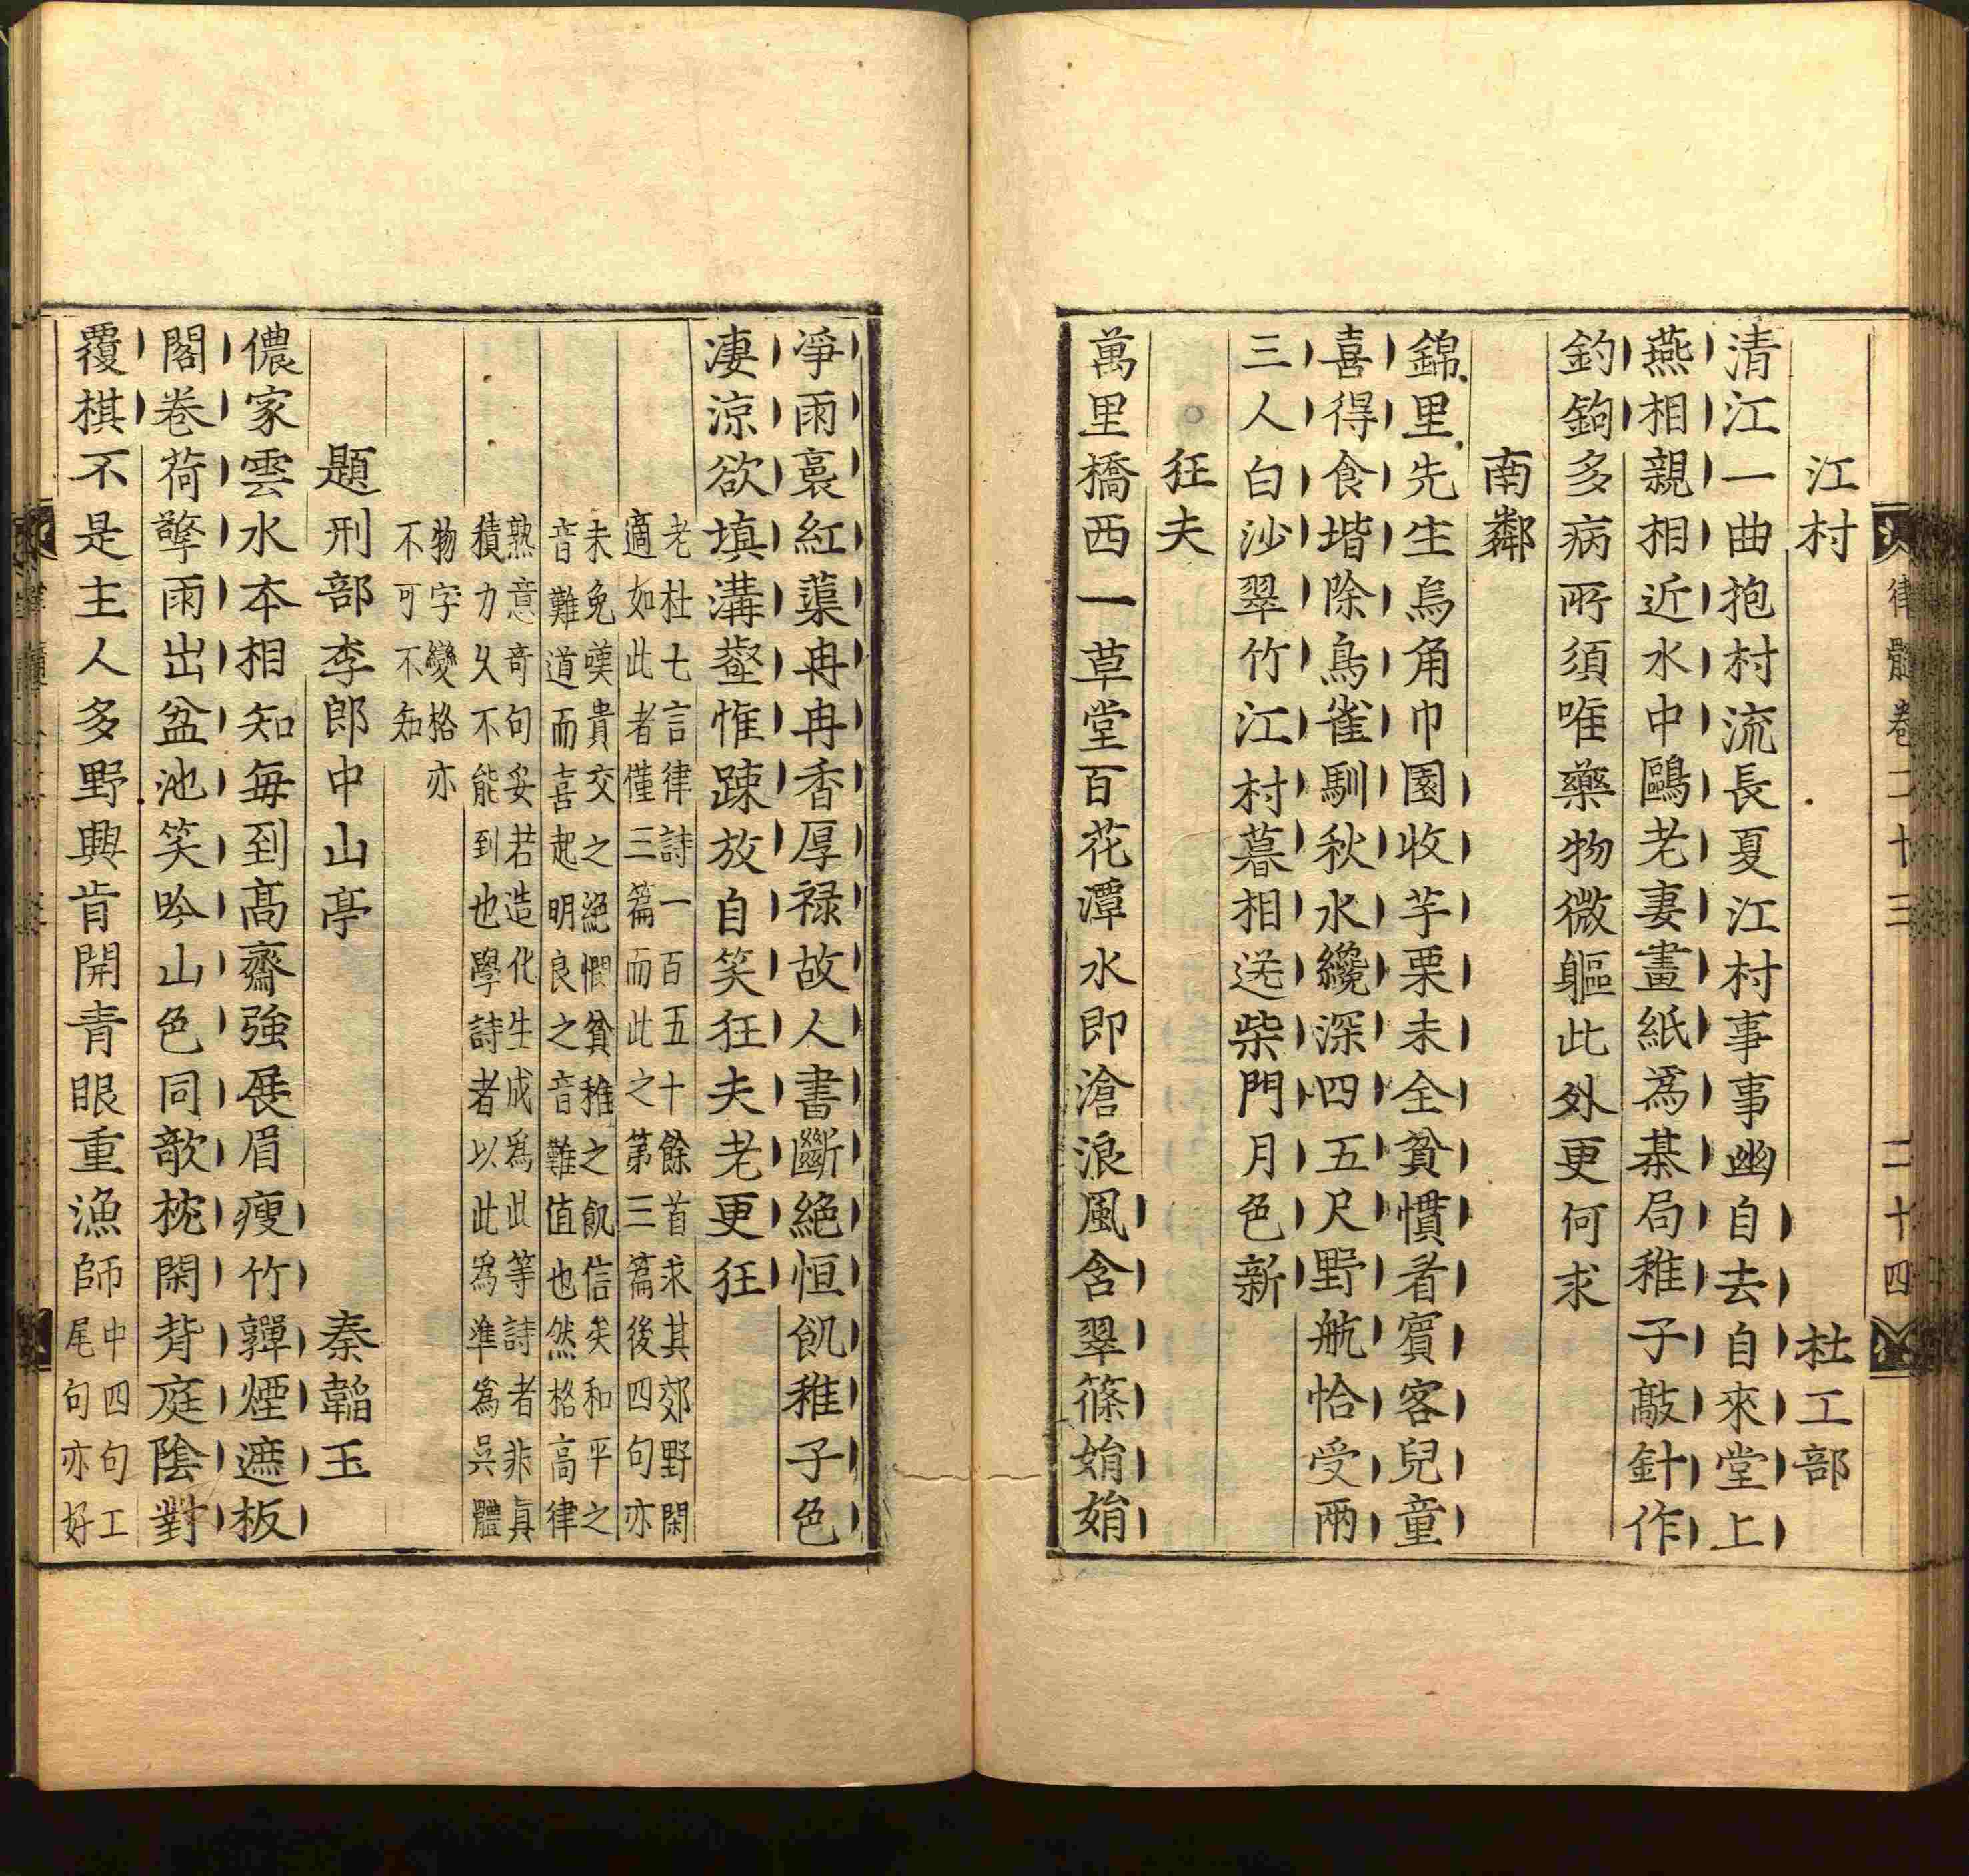 律髓卷二十三　二十四
江村　杜工部
清江一曲抱村流長夏江村事事幽自去自來堂上
燕相親相近水中鷗老妻畫紙爲棊局稚子敲針作
釣鉤多病所須唯藥物微軀此外更何求
南鄰
錦里先生烏角巾園收芋栗未全貧慣看賓客兒童
喜得食堦除鳥雀馴秋水纔深四五尺野航恰受兩
三人白沙翠竹江村暮相送柴門月色新
○狂夫
萬里橋西一草堂百花潭水即滄浪風含翠篠娟娟
淨雨裛紅蕖冉冉香厚禄故人書斷絕恒飢稚子色
凄涼欲填溝壑惟踈放自笑狂夫老更狂
老杜七言律詩一百五十餘首求其郊野閑
適如此者僅三篇而此之第三篇後四句亦
未免嘆貴交之絕憫貧稚之飢信矣和平之
音難道而喜起明良之音難值也然格高律
熟意奇句妥若造化生成爲此等詩者非真
積力久不能到也學詩者以此爲準爲吳體
物字變格亦
不可不知
題刑部李郎中山亭　秦韜玉
儂家雲水本相知每到高齋強展眉瘦竹嚲煙遮板
閣卷荷擎雨出盆池笑吟山色同敧枕閑背庭陰對
覆棋不是主人多野興肯開青眼重漁師
中四句工
尾句亦好